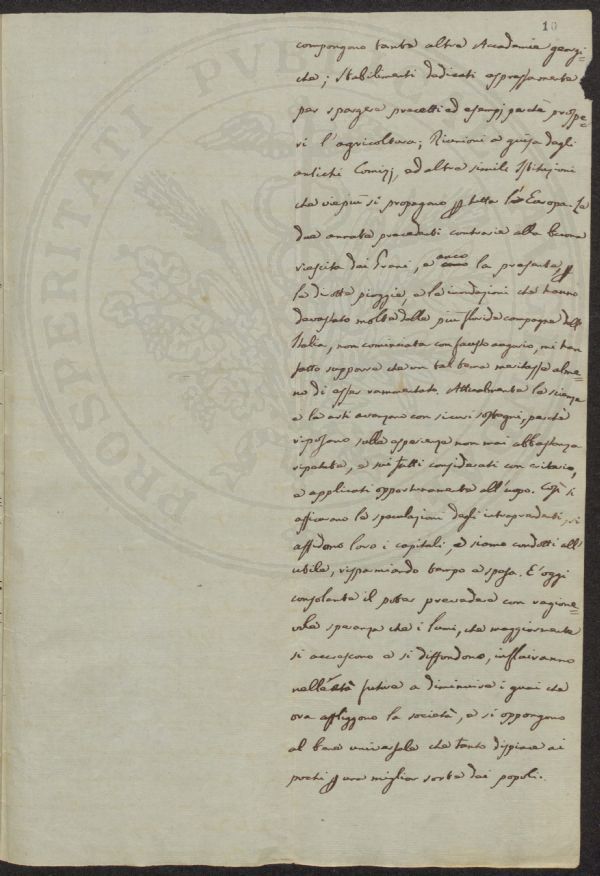 10
compongono tante altre Accademie georgi=
che; Stabilimenti dedicati espressamente
per spargere precetti ed esempj perchè prospe=
ri l'agricoltura; Riunioni a guisa degli
antichi Comizj, ed altre simile Istituzioni
che viepiù si propagano p tutta l'Europa. Le
due annate precedenti contrarie alla buona
riescita dei Grani, e anco la presente, p
le dirotte pioggie e le inondazioni che hanno
devastato molte delle più floride campagne dell'
Italia, non cominciata con fausto augurio, mi han
fatto supporre che un tal tema meritasse alme=
no di esser rammentato. Attualmente le scienze
e le arti avanzano con sicuri sostegni, perchè
riposano sulle esperienze non mai abbastanza
ripetute, e sui fatti considerati con criterio,
e applicati opportunamente all'uopo. Così si
assicurano le speculazioni degli intraprendenti, si
affidono loro i capitali, e siamo condotti all'
utile, risparmiando tempo e spesa. E' oggi
consolante il poter prevedere con ragione=
vole speranza che i lumi, che maggiormente
si accrescono e si diffondono, influiranno
nell'età futura a diminuire i guai che
ora affliggono la società, e si oppongono
al bene universale che tanto dispiace ai
pochi p una miglior sorte dei popoli.
PROSPERITATI PVBLIC